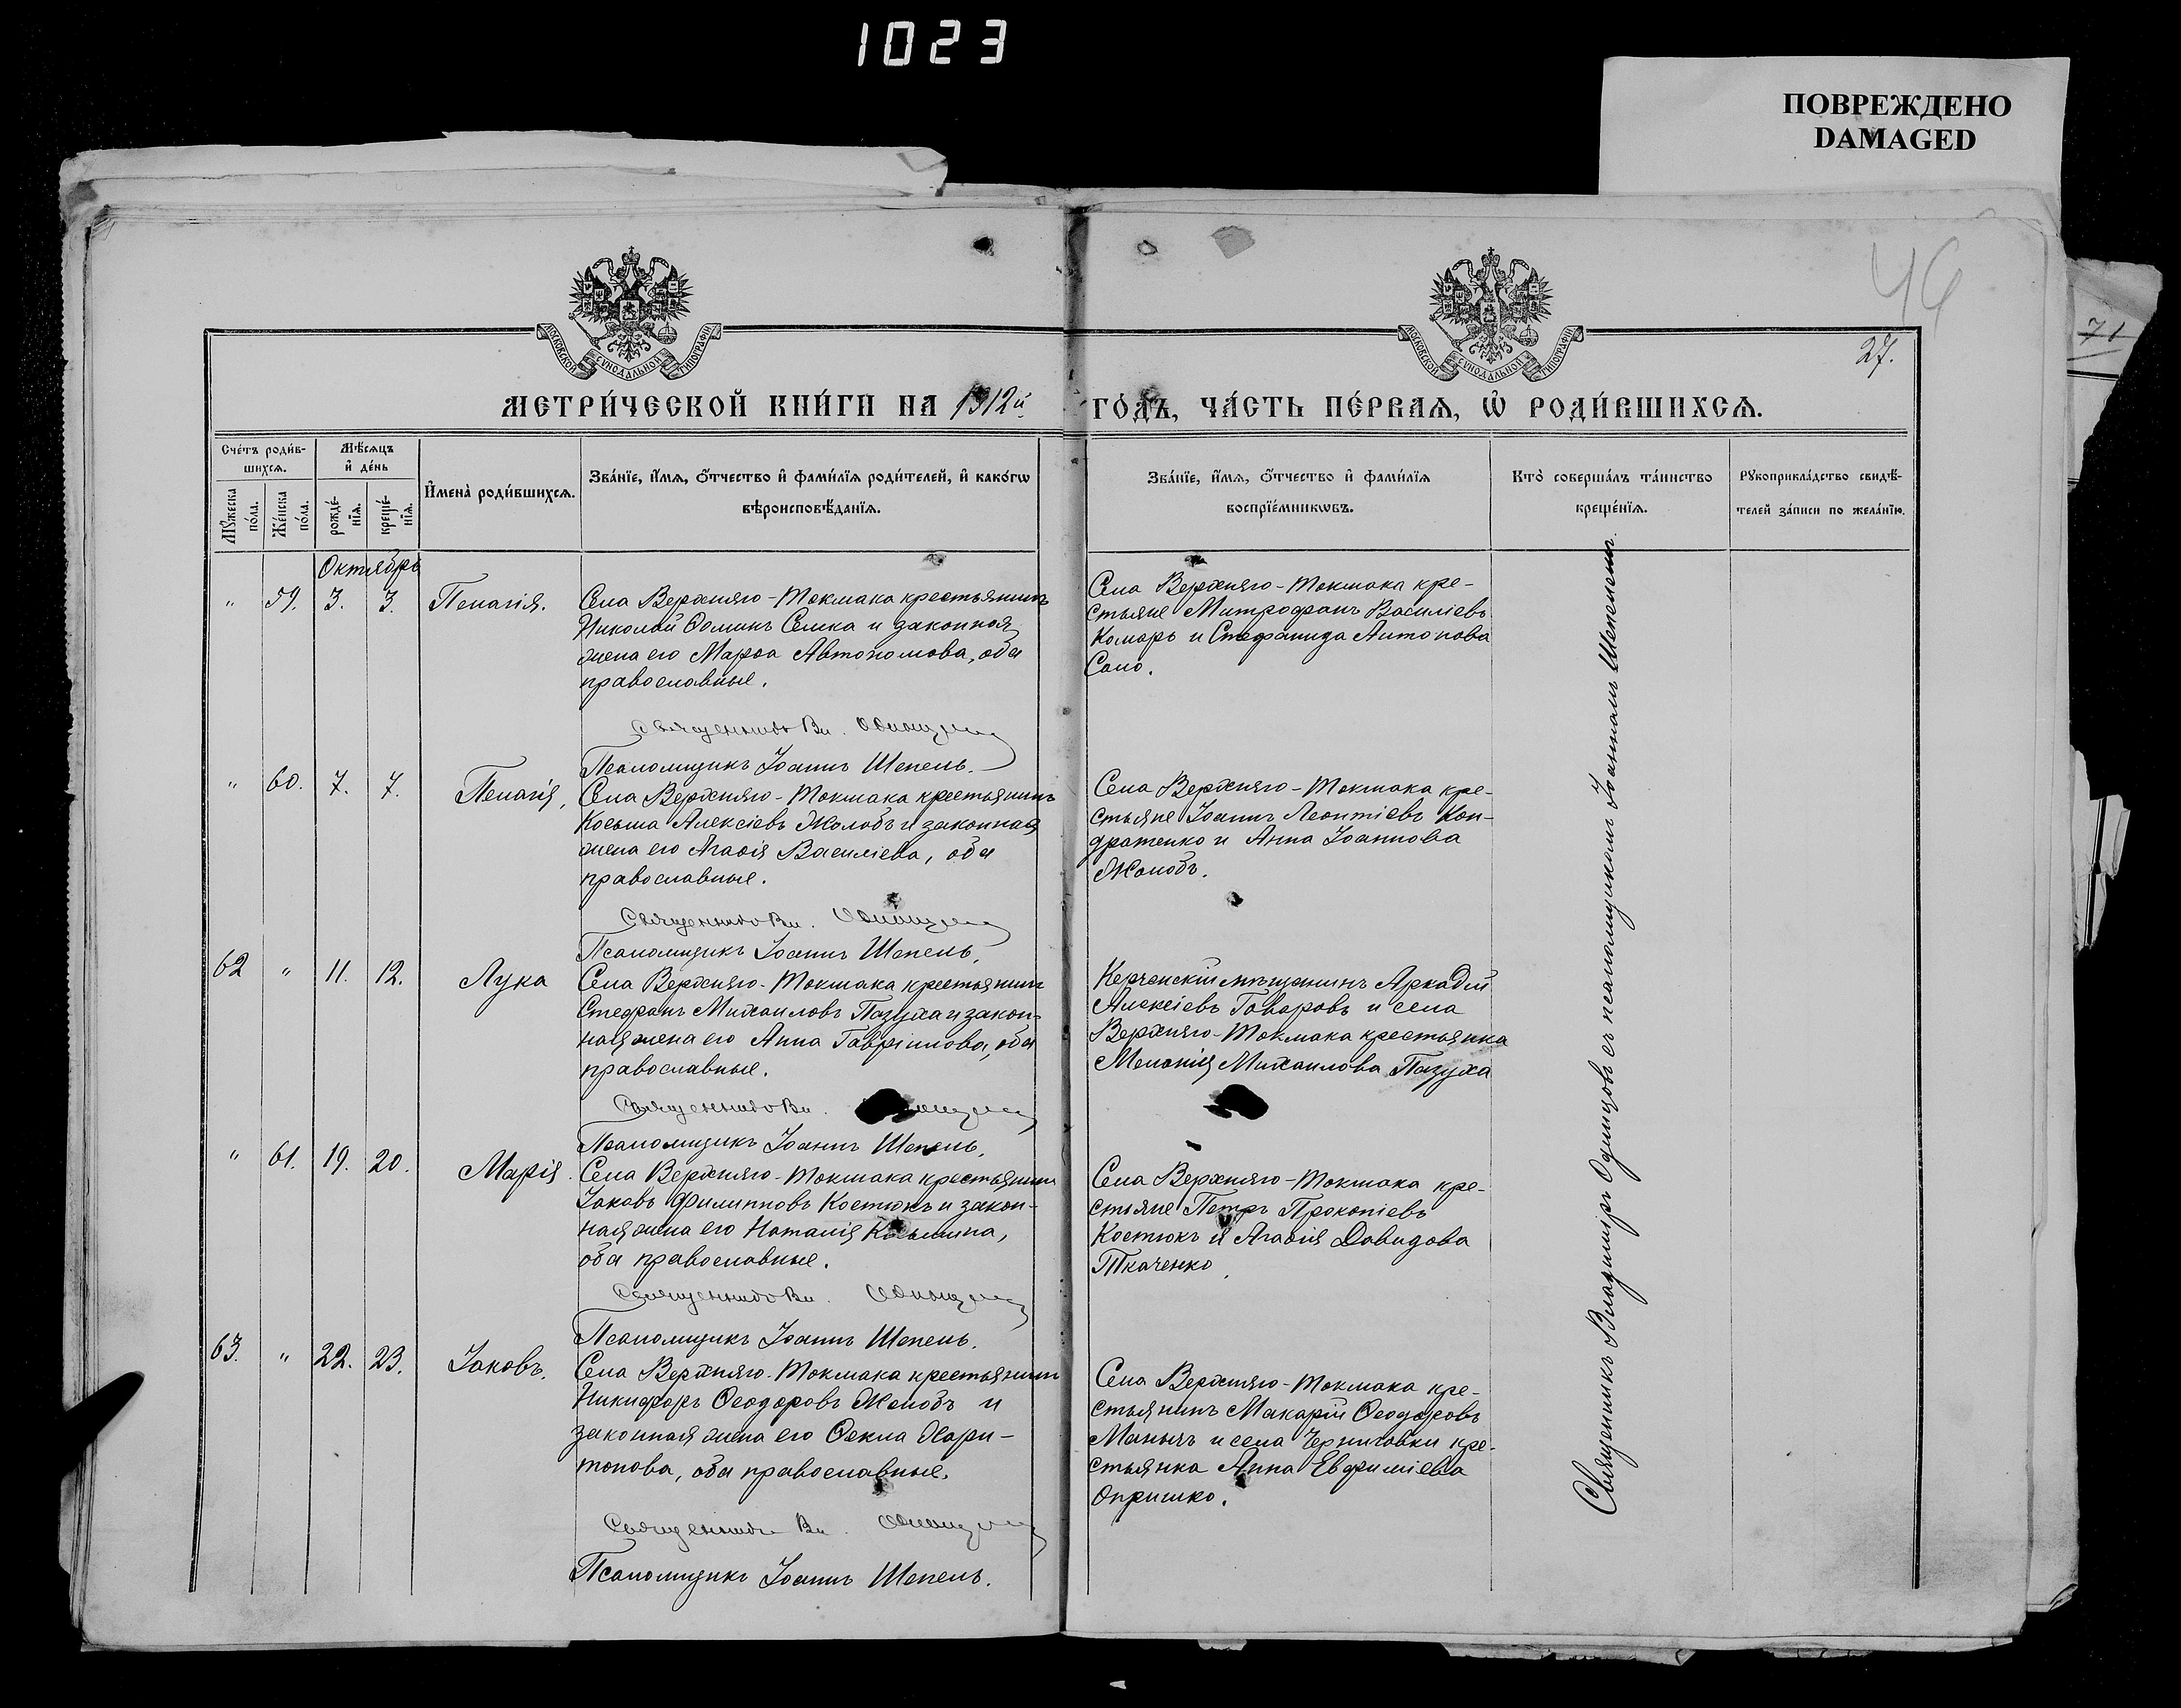 1023
ПОВРЕЖДЕНО
DAMAGED
46
27.
71
МОСКОВСКОЙ СѴНОДАЛЬНОЙ ТИПОГРАФІИ
МОСКОВСКОЙ СѴНОДАЛЬНОЙ ТИПОГРАФІИ
МЕТРИ́ЧЕСКОЙ КНИ́ГИ НА 1912й
ГО́ДЪ, ЧА́СТЬ ПЕ́РВАЯ, Ѡ РОДИ́ВШИХСЯ.
Сче́тъ роди́в-
шихся.
Мѣ́сяцъ
и де́нь
Мꙋ́жеска
по́ла.
Же́нска
по́ла.
рожде́-
нїя.
креще́-
нїя.
И҆мена̀ роди́вшихся.
Зва́нїе, и҆́мя, о҆́тчество и҆ фами́лїя роди́телей, и҆ како́гѡ
вѣроисповѣ́данїя.
Зва́нїе, и҆́мя, о҆́тчество и҆ фами́лїя
воспрїе́мникѡвъ.
Кто̀ соверша́лъ та́инство
креще́нїя.
Рꙋкоприкла́дство свидѣ́-
телей за́писи по жела́нїю.
Октябрь
" 59. 3. 3. Пелагія.
Села Верхняго-Токмака крестьянинъ
Николай Ѳоминъ Семка и законная
жена его Марѳа Автономова, оба
православные.
Священникъ Вл. Одинцовъ
Псаломщикъ Іоаннъ Шепель.
Села Верхняго-Токмака кре-
стьяне Митрофанъ Василіевъ
Комаръ и Стефанида Антонова
Сало.
" 60. 7. 7. Пелагія,
Села Верхняго-Токмака крестьянинъ
Косьма Алексіевъ Жолобъ и законная
жена его Агаѳія Василіева, оба
православные.
Священникъ Вл. Одинцовъ
Псаломщикъ Іоаннъ Шепель.
Села Верхняго-Токмака кре-
стьяне Іоаннъ Леонтіевъ Кон-
дратенко и Анна Іоаннова
Жолобъ.
62 " 11. 12. Лука
Села Верхняго-Токмака крестьянинъ
Стефанъ Михаиловъ Пазуха и закон-
ная жена его Анна Гавріилова, оба
православные.
Священникъ Вл. Одинцовъ
Псаломщикъ Іоаннъ Шепель.
Керченскій мѣщанинъ Аркадій
Алексіевъ Говоровъ и села
Верхняго-Токмака крестьянка
Меланія Михаилова Пазуха
" 61. 19. 20. Марія.
Села Верхняго-Токмака крестьянинъ
Іаковъ Филипповъ Костюкъ и закон-
ная жена его Наталія Косьмина,
оба православные.
Священникъ Вл. Одинцовъ
Псаломщикъ Іоаннъ Шепель.
Села Верхняго-Токмака кре-
стьяне Петръ Прокопіевъ
Костюкъ и Агаѳія Давидова
Ткаченко.
63. " 22. 23. Іаковъ.
Села Верхняго-Токмака крестьянинъ
Никифоръ Ѳеодоровъ Жолобъ и
законная жена его Ѳекла Хари-
тонова, оба православные.
Священникъ Вл. Одинцовъ
Псаломщикъ Іоаннъ Шепель.
Села Верхняго-Токмака кре-
стьянинъ Макарій Ѳеодоровъ
Манычъ и села Черниговки кре-
стьянка Анна Евфиміева
Опришко.
Священникъ Владиміръ Одинцовъ съ псаломщикомъ Іоанномъ Шепелемъ.